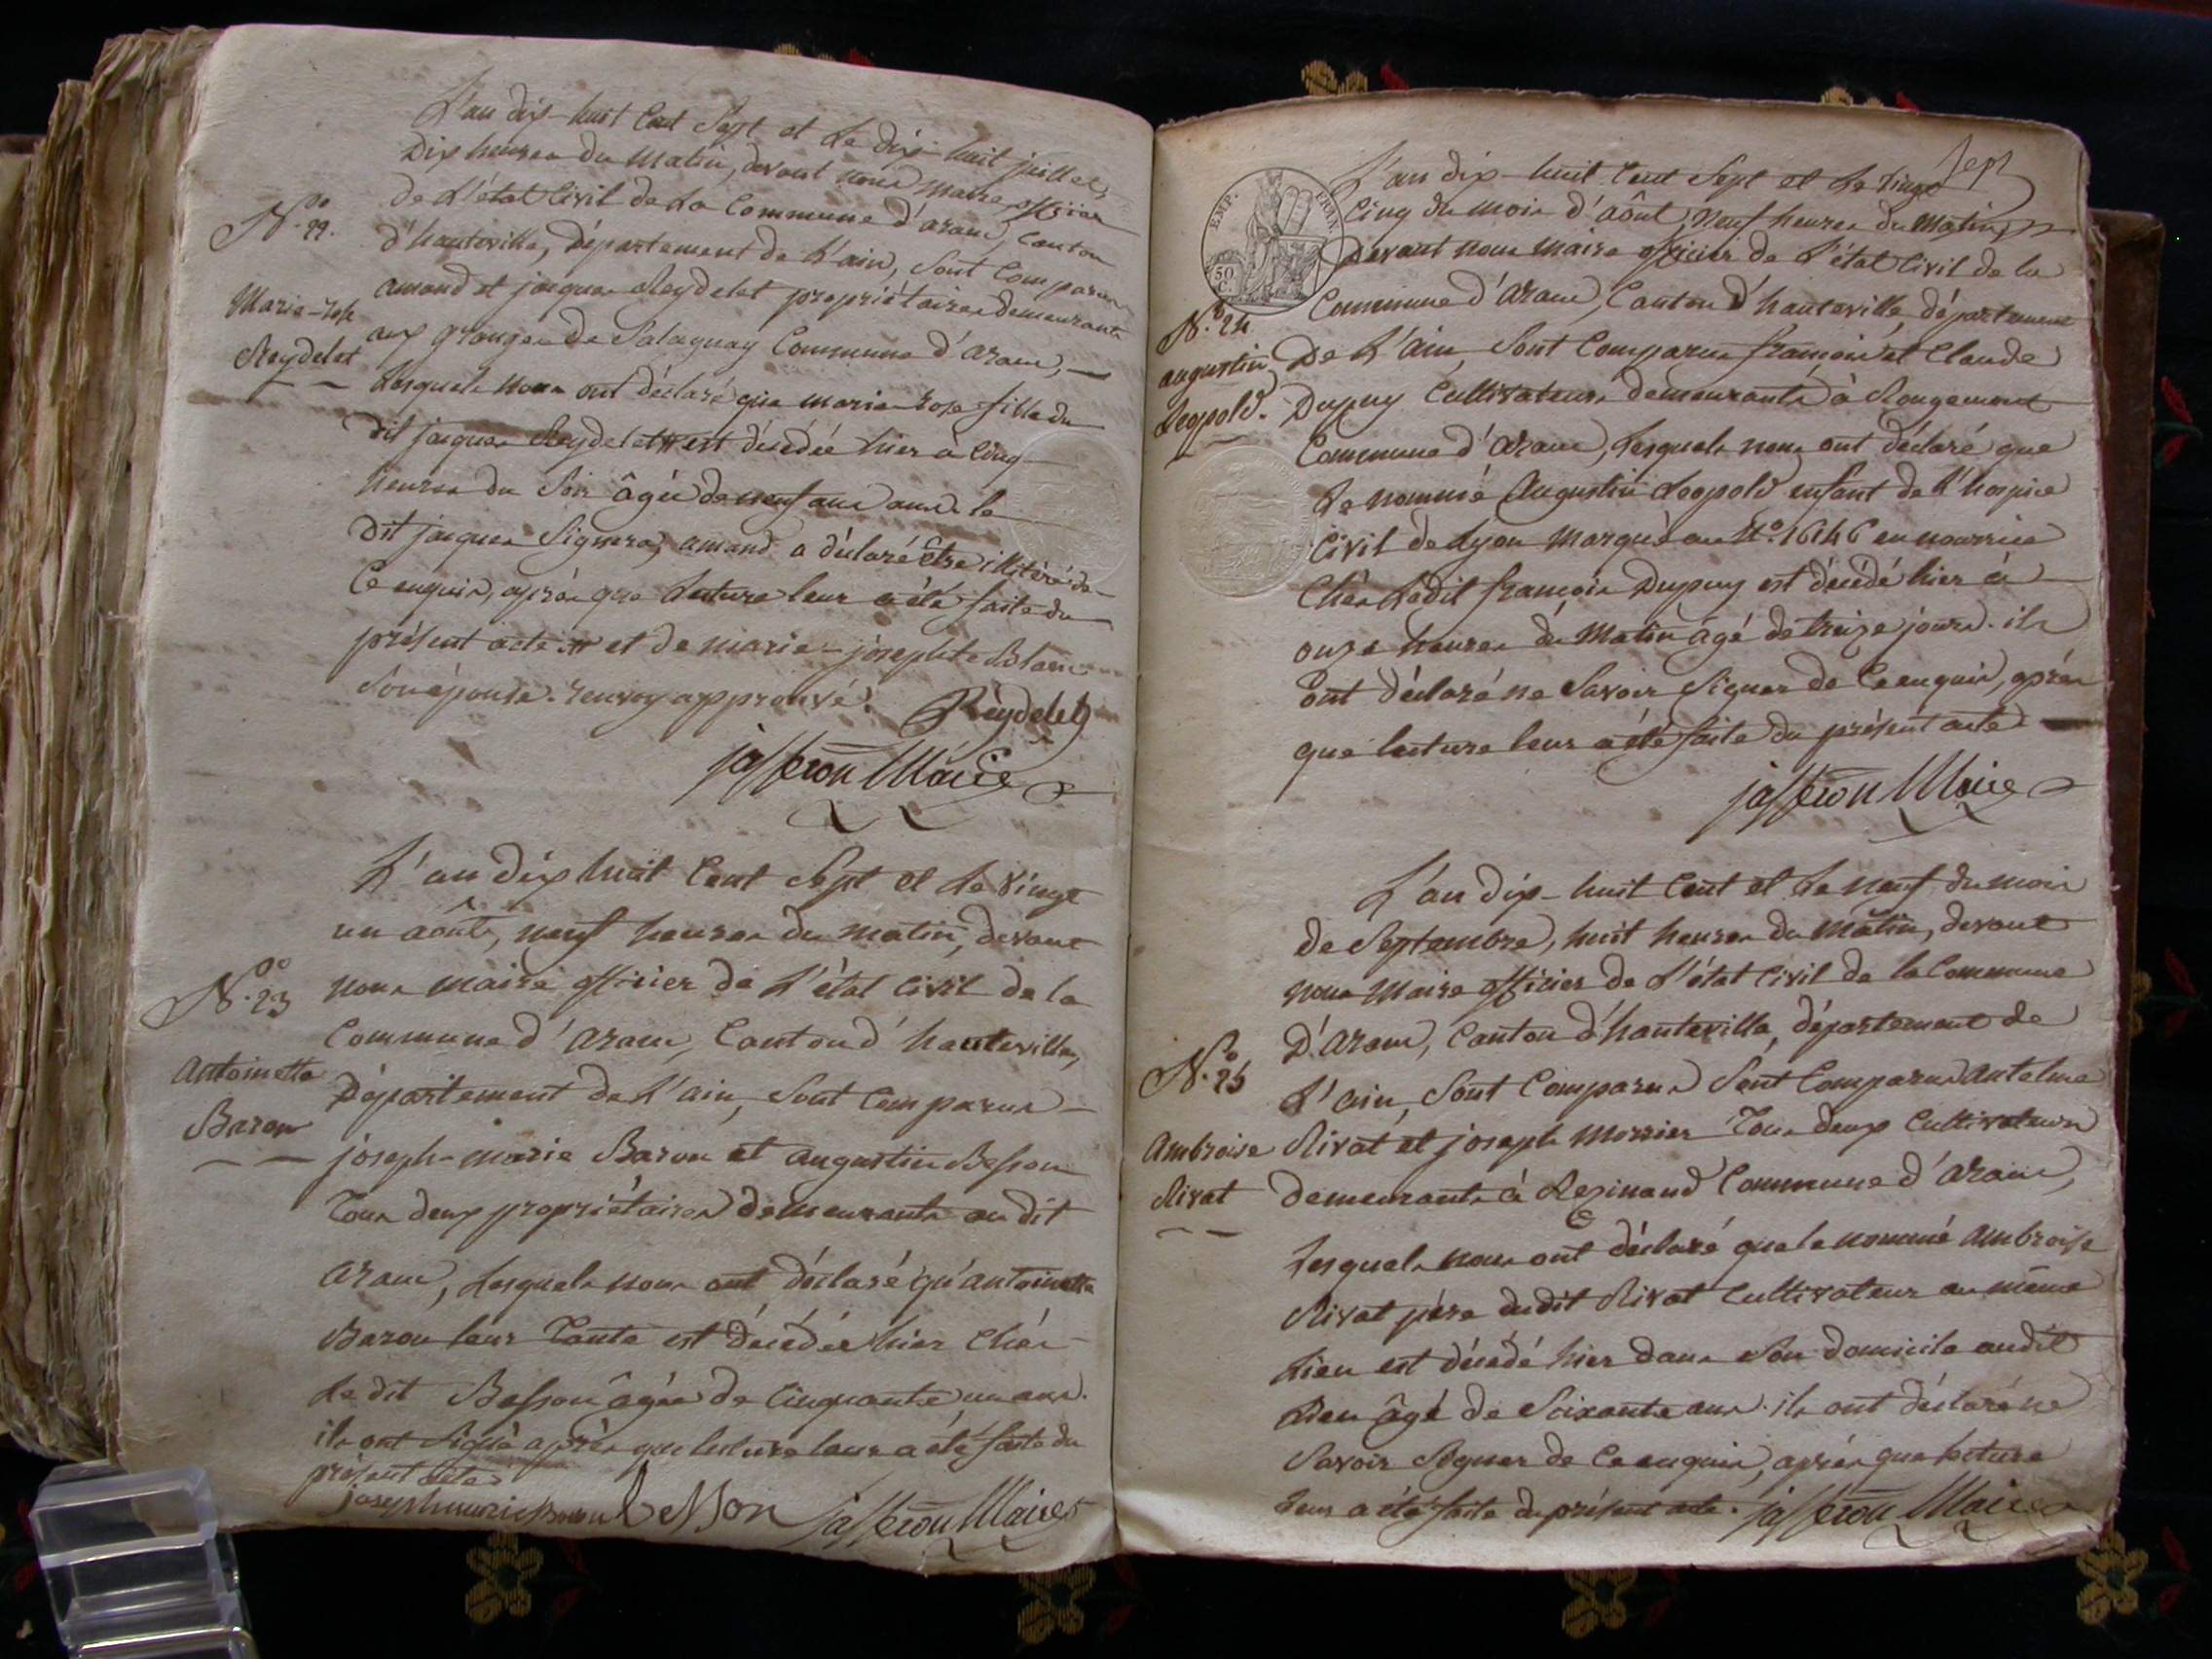 L'an dix-huit Cent Sept et le dix-huit juillet,
Dix heures du matin, devant nous maire officier
de L'état Civil de La Commune d'aranc, Canton
N.o 22.
d'hauteville, Département de L'ain, Sont Comparus
amand et jacques Reydelet propriétaires demeurants
Marie-Rose
aux granges de Salagnay Commune d'aranc,
Reydelet
Lesquels nous ont déclaré que marie rose fille du
dit jacques Reydelet # est décédée hier à Cinq
heures du Soir âgée de neuf ans
dit jacques Signera, amand a déclaré être illitéré de
Ce enquis, après que Lecture leur a été faite du
présent acte # et de marie-josephte Blanc
Son épouse. renvoy approuvé.
Reydelet
jasseron Maire
L'an Dix huit Cent Sept et Le vingt
un août, neuf heures du matin, devant
N.o 23
nous maire officier de L'état Civil de la
Commune d'aranc, Canton d'hauteville,
Antoinette
Département de L'ain, Sont Comparus
Baron
joseph-marie Baron et augustin Besson
Tous deux propriétaires demeurants au dit
aranc, Lesquels nous ont déclaré qu'antoinette
Baron leur Tante est décédée hier Chés
Le dit Besson âgée de Cinquante un ans.
ils ont Signé après que lecture leur a été faite du
présent acte
joseph marie Baron besson jasseron Maire
Sept
EMP. FRAN.
50 C.
L'an dix-huit Cent Sept et Le vingt
Cinq du mois d'août, neuf heures du matin,
Devant nous maire officier de L'état Civil de la
Commune d'aranc, Canton d'hauteville, département
N.o 24
augustin
De L'ain, Sont Comparus françois et Claude
Leopold.
Dupuy Cultivateurs demeurants à Rougemont
Commune d'aranc, Lesquels nous ont déclaré que
Le nommé Augustin Leopold enfant de L'hospice
Civil de Lyon marqué au N.o 16146 en nourrice
Chés Ledit françois Dupuy est décédé hier à
onze heures du matin âgé de treize jours. ils
ont déclaré ne Savoir Signer de Ce enquis, après
que lecture leur a été faite du présent acte
jasseron Maire
L'an dix-huit Cent et Le neuf du mois
de Septembre, huit heures du matin, devant
nous maire officier de L'état Civil de la Commune
D'aranc, Canton d'hauteville, département de
N.o 25
L'ain, Sont Comparus Sont Comparus antelme
Ambroise
Rivat et joseph Morrier Tous deux Cultivateurs
Rivat
demeurants à Rezinand Commune d'aranc,
Lesquels nous ont déclaré que le nommé ambroise
Rivat père dudit Rivat Cultivateur au même
Lieu est décédé hier dans Son domicile audit
Lieu âgé de Soixante ans. ils ont déclaré ne
Savoir Signer de Ce enquis, après que lecture
leur a été faite du présent acte. jasseron Maire